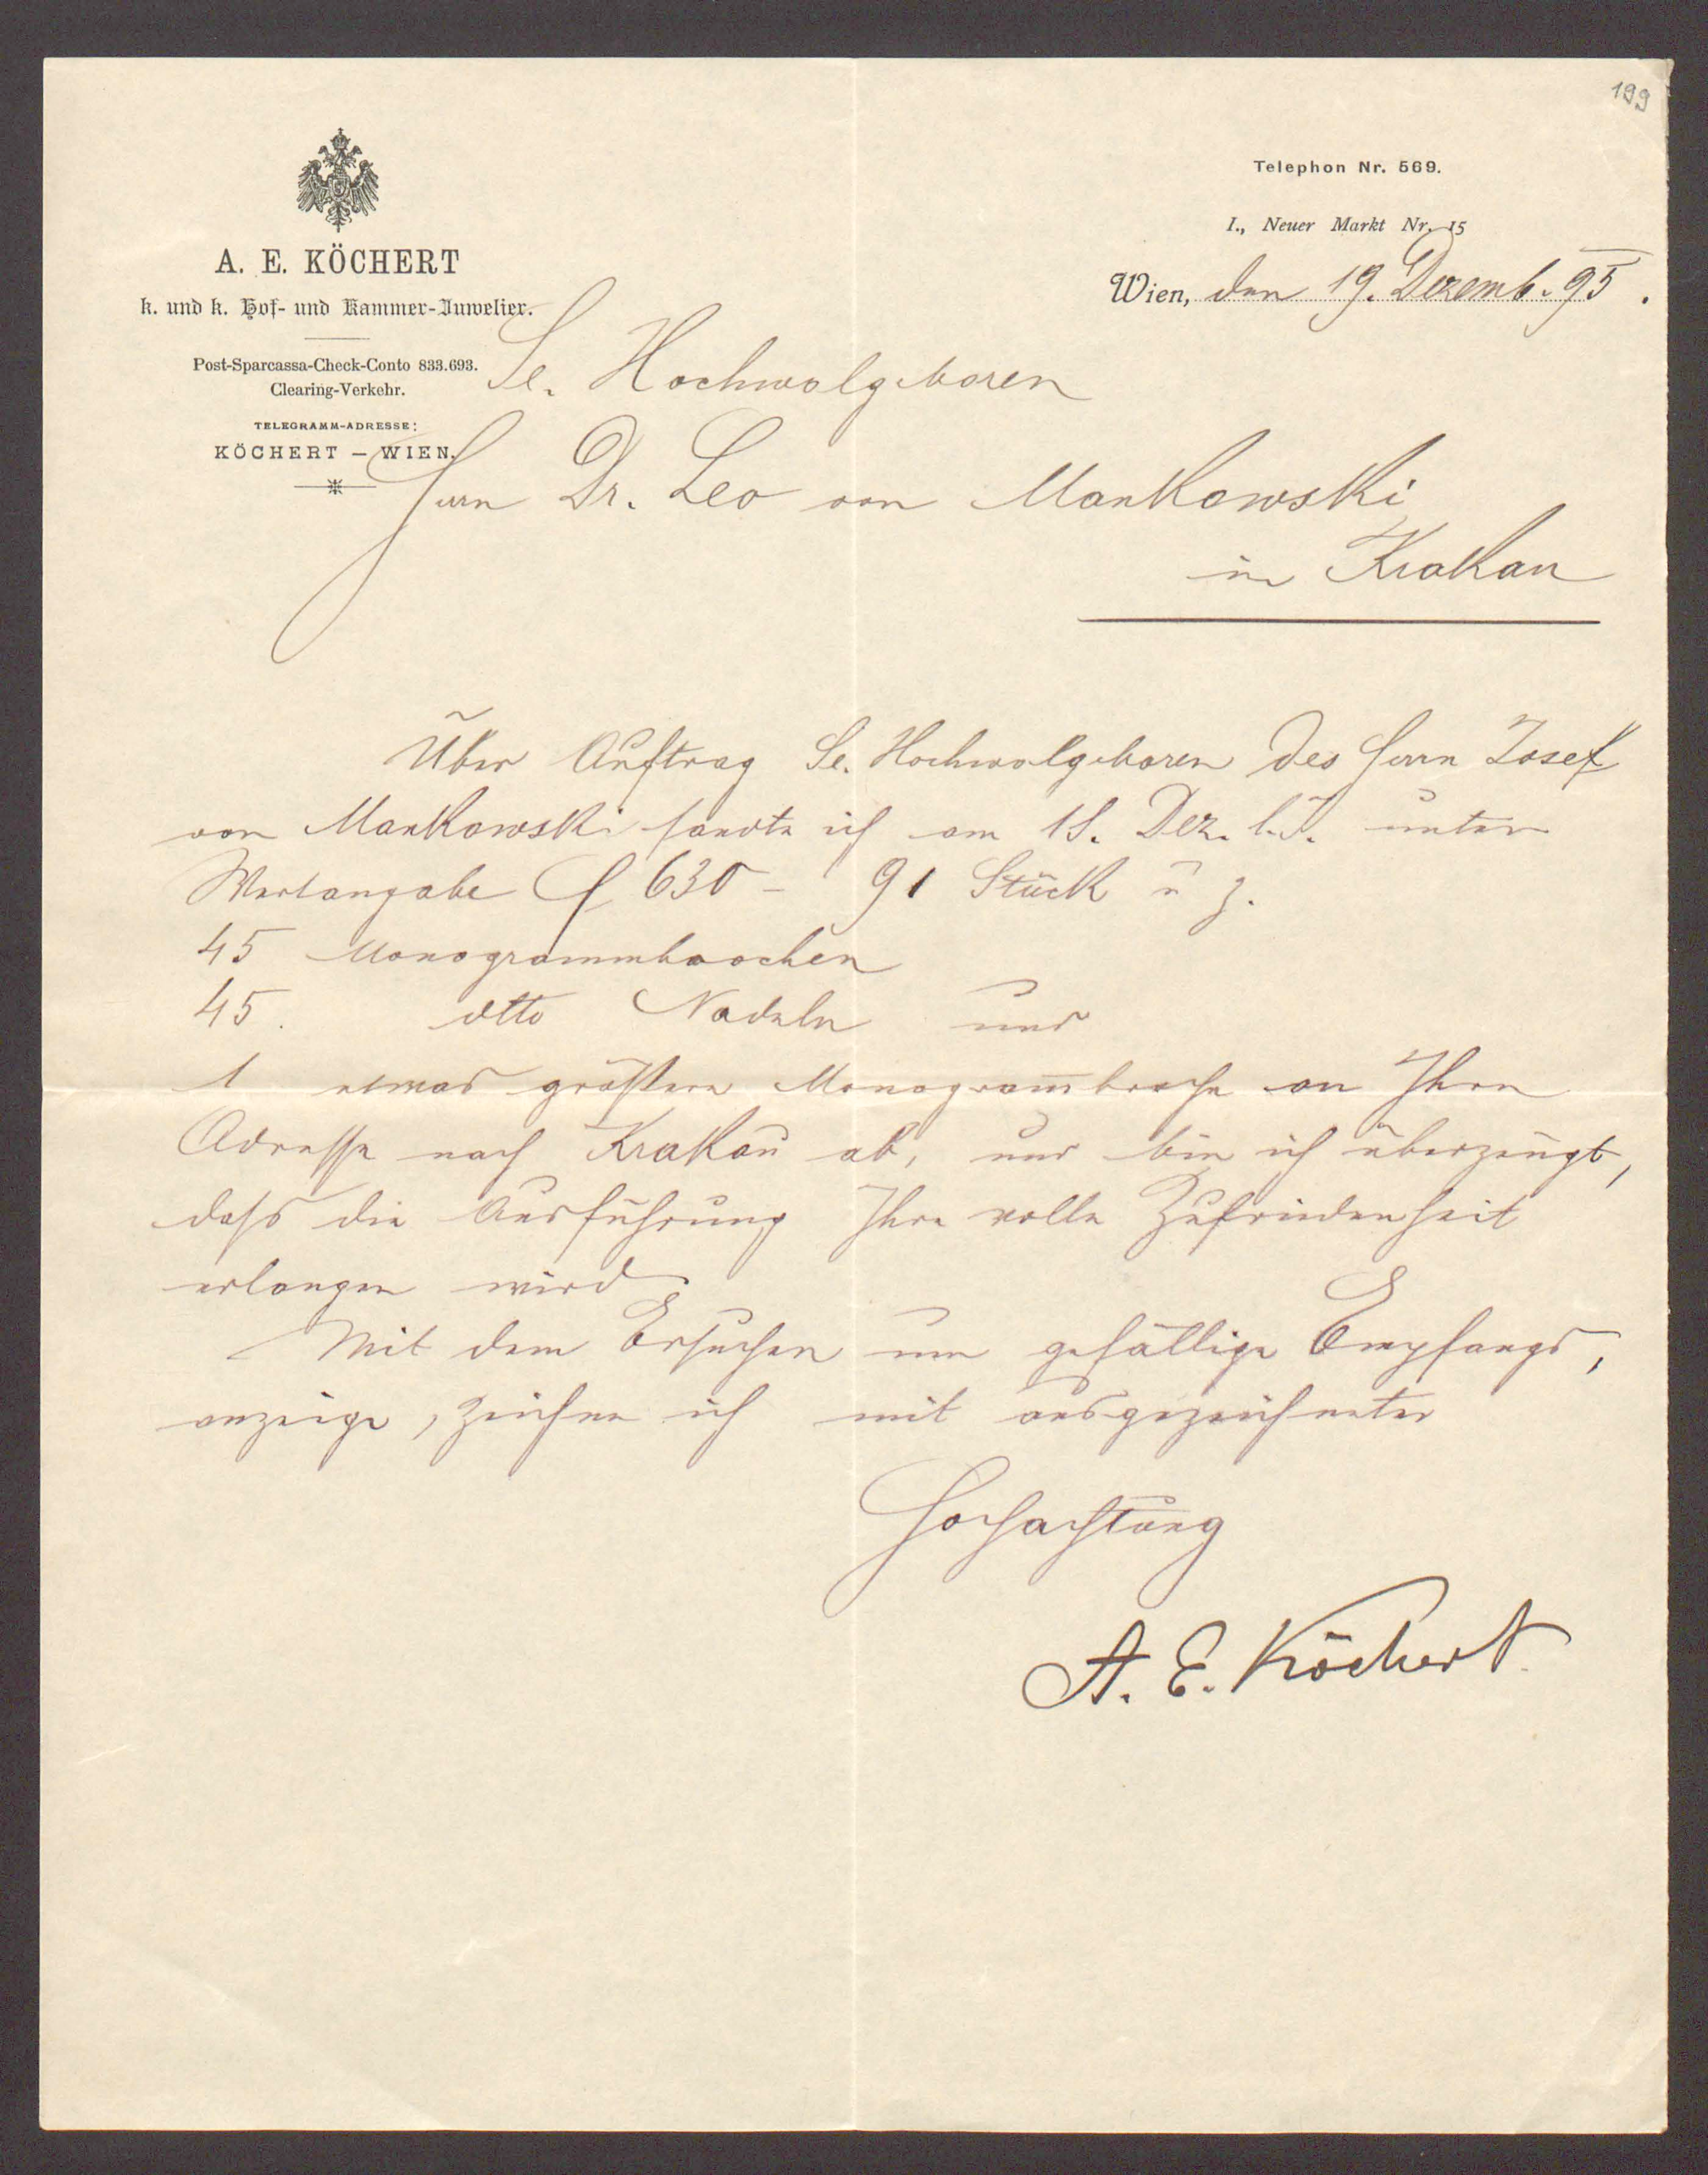 199
Telephon Nr. 569.
I., Neuer Markt Nr. 15
Wien, den 19. Dezemb. 95.
A. E. KÖCHERT
k. und k. Hof- und Kammer-Juwelier.
Post-Sparcassa-Check-Conto 833.693.
Clearing-Verkehr.
TELEGRAMM-ADRESSE:
KÖCHERT – WIEN.
Se. Hochwolgeboren
Herrn Dr. Leo von Mankowski
in Krakau
Über Auftrag Se. Hochwolgeboren des Herrn Josef
von Mankowski sandte ich am 18. Dez. l. J. unter
Wertangabe f 630 – 91 Stück u z.
45 Monogrammbrochen
45. dtto Nadeln und
1 etwas größere Monogram̅broche an Ihre
Adresse nach Krakau ab, und bin ich überzeugt,
dass die Ausführung Ihre volle Zufriedenheit
erlangen wird
Mit dem Ersuchen um gefällige Empfangs,
anzeige, zeichne ich mit ausgezeichneter
Hochachtung
A. E. Köchert